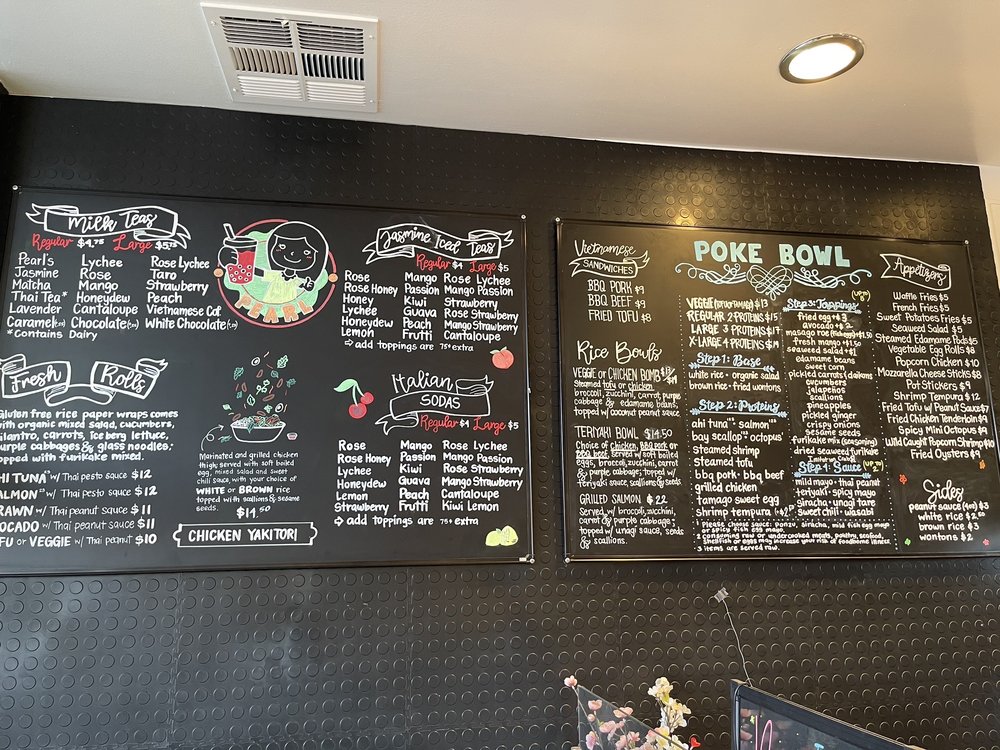 Milk Teas
Regular $4.75 Large $5.75
Pearl's Lychee Rose Lychee
Jasmine Rose Taro
Matcha Mango Strawberry
Thai Tea* Honeydew Peach
Lavender Cantaloupe Vietnamese Cof
Caramel Chocolate White Chocolate
*Contains Dairy
PEARL
Jasmine Iced Teas
Regular $4 Large $5
Rose Mango Rose Lychee
Rose Honey Passion Mango Passion
Honey Kiwi Strawberry
Lychee Guava Rose Strawberry
Honeydew Peach Mango Strawberry
Lemon Frutti Cantaloupe
⇨ add toppings are 75¢ extra
Fresh Rolls
Gluten free rice paper wraps comes
with organic mixed salad, cucumbers,
cilantro, carrots, iceberg lettuce,
purple cabbages & glass noodles.
topped with furikake mixed.
AHI TUNA w/ Thai pesto sauce $12
SALMON w/ Thai pesto sauce $12
PRAWN w/ Thai peanut sauce $11
AVOCADO w/ Thai peanut sauce $11
TOFU or VEGGIE w/ Thai peanut $10
Marinated and grilled chicken
thigh served with soft boiled
egg, mixed salad and sweet
chili sauce, with your choice of
WHITE or BROWN rice
topped with scallions & sesame
seeds.
$14.50
CHICKEN YAKITORI
Italian
SODAS
Regular $4 Large $5
Rose Mango Rose Lychee
Rose Honey Passion Mango Passion
Lychee Kiwi Rose Strawberry
Honeydew Guava Mango Strawberry
Lemon Peach Cantaloupe
Strawberry Frutti Kiwi Lemon
⇨ add toppings are 75¢ extra
Vietnamese
SANDWICHES
BBQ PORK $9
BBQ BEEF $9
FRIED TOFU $8
Rice Bowls
VEGGIE or CHICKEN BOMB
Steamed tofu or chicken,
broccoli, zucchini, carrot, purple
cabbage & edamame beans,
topped w/ coconut peanut sauce.
TERIYAKI BOWL $14.50
Choice of chicken, BBQ pork or
bbq beef, served w/ soft boiled
eggs, broccoli, zucchini, carrot
& purple cabbages; topped w/
teriyaki sauce, scallions & seeds.
GRILLED SALMON $22
Served w/ broccoli, zucchini,
carrot & purple cabbage;
topped w/ unagi sauce, seeds
& scallions.
POKE BOWL
VEGGIE $13
REGULAR 2 PROTEINS $15
LARGE 3 PROTEINS $17
X-LARGE 4 PROTEINS $19
Step 1: Base
white rice · organic salad
brown rice · fried wontons
Step 2: Proteins
ahi tuna · salmon
bay scallop · octopus
steamed shrimp
steamed tofu
bbq pork · bbq beef
grilled chicken
tamago sweet egg
shrimp tempura
Step 3: Toppings
fried egg +$3
avocado +$2
masago roe
fresh mango +$1.50
seaweed salad +$1
edamame beans
sweet corn
pickled carrots/daikons
cucumbers
jalapeños
scallions
pineapples
pickled ginger
crispy onions
sesame seeds
furikake mix (seasoning)
dried seaweed furikake
Step 4: Sauce
mild mayo · thai peanut
teriyaki · spicy mayo
siracha · unagi tare
sweet chili · wasabi
1 Please choose sauce: ponzu, siracha, mild fish egg mayo
or spicy fish egg mayo
2 consuming raw or undercooked meats, poultry, seafood,
shellfish or eggs may increase your risk of foodborne illness.
3 items are served raw.
Appetizers
Waffle Fries $5
French Fries $5
Sweet Potatoes Fries $5
Seaweed Salad $5
Steamed Edamame Pods $5
Vegetable Egg Rolls $8
Popcorn Chicken $10
Mozzarella Cheese Sticks $8
Pot Stickers $9
Shrimp Tempura $12
Fried Tofu w/ Peanut Sauce $7
Fried Chicken Tenderloin $9
Spicy Mini Octopus $9
Wild Caught Popcorn Shrimp $10
Fried Oysters $9
Sides
peanut sauce $3
white rice $2.50
brown rice $3
wontons $2